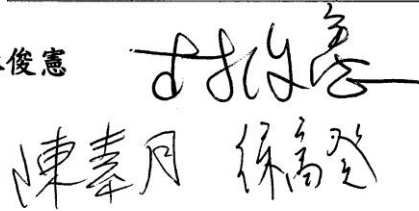 俊憲 林俊憲
陳素月 徐富癸